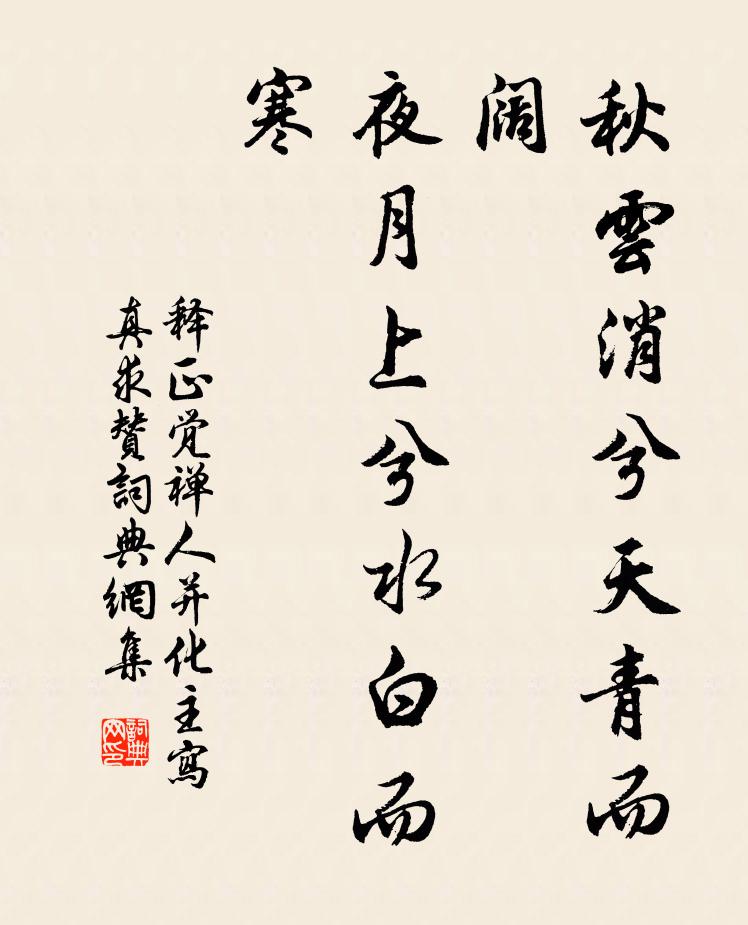 秋雲消兮天青而
阔
夜月上兮水白而
寒
释正觉禅人并化主寫
真求賛詞典網集
詞典
网印